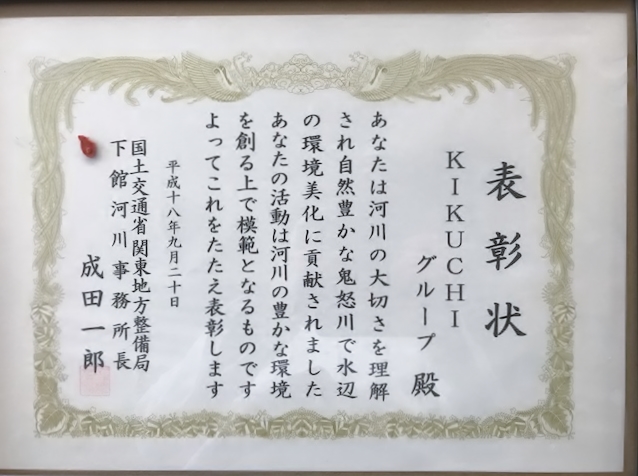 表彰状
KIKUCHI
グループ 殿
あなたは河川の大切さを理解
され自然豊かな鬼怒川で水辺
の環境美化に貢献されました
あなたの活動は河川の豊かな環境
を創る上で模範となるものです
よってこれをたたえ表彰します
平成十八年九月二十日
国土交通省関東地方整備局
下館河川事務所長
成田一郎